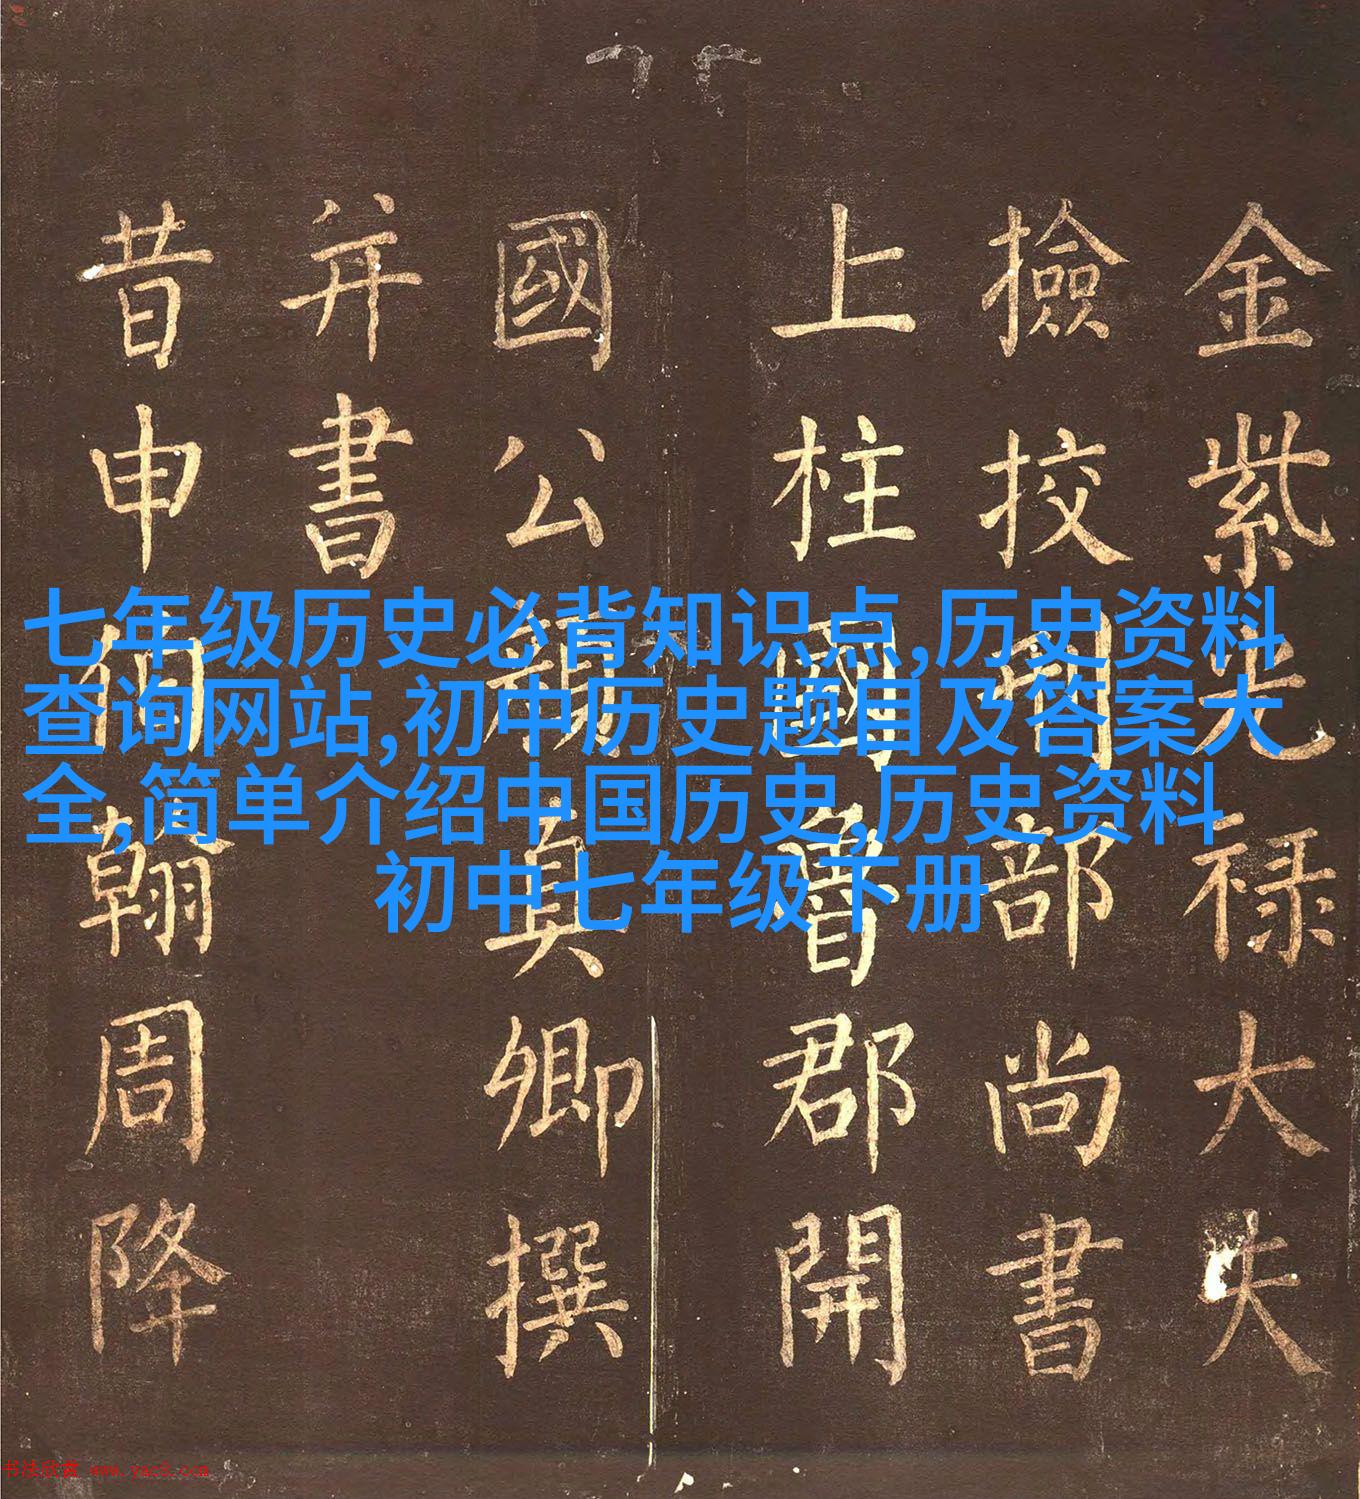 七年级历史必背知识点,历史资料
查询网站,初中历史题目及答案大
全,简单介绍中国历史,历史资料
初中七年级下册
金紫光禄大夫
撿挍刑部尚書
上柱國魯郡開
國公顔真卿撰
并書
昔申伯翰周降
书法欣赏 www.yac8.com